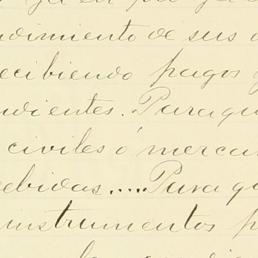 ndimiento de sus
ecibiendo pagos
ndientes. Para qu
civiles ó merca
ebidas.... Para q
instrumentos p